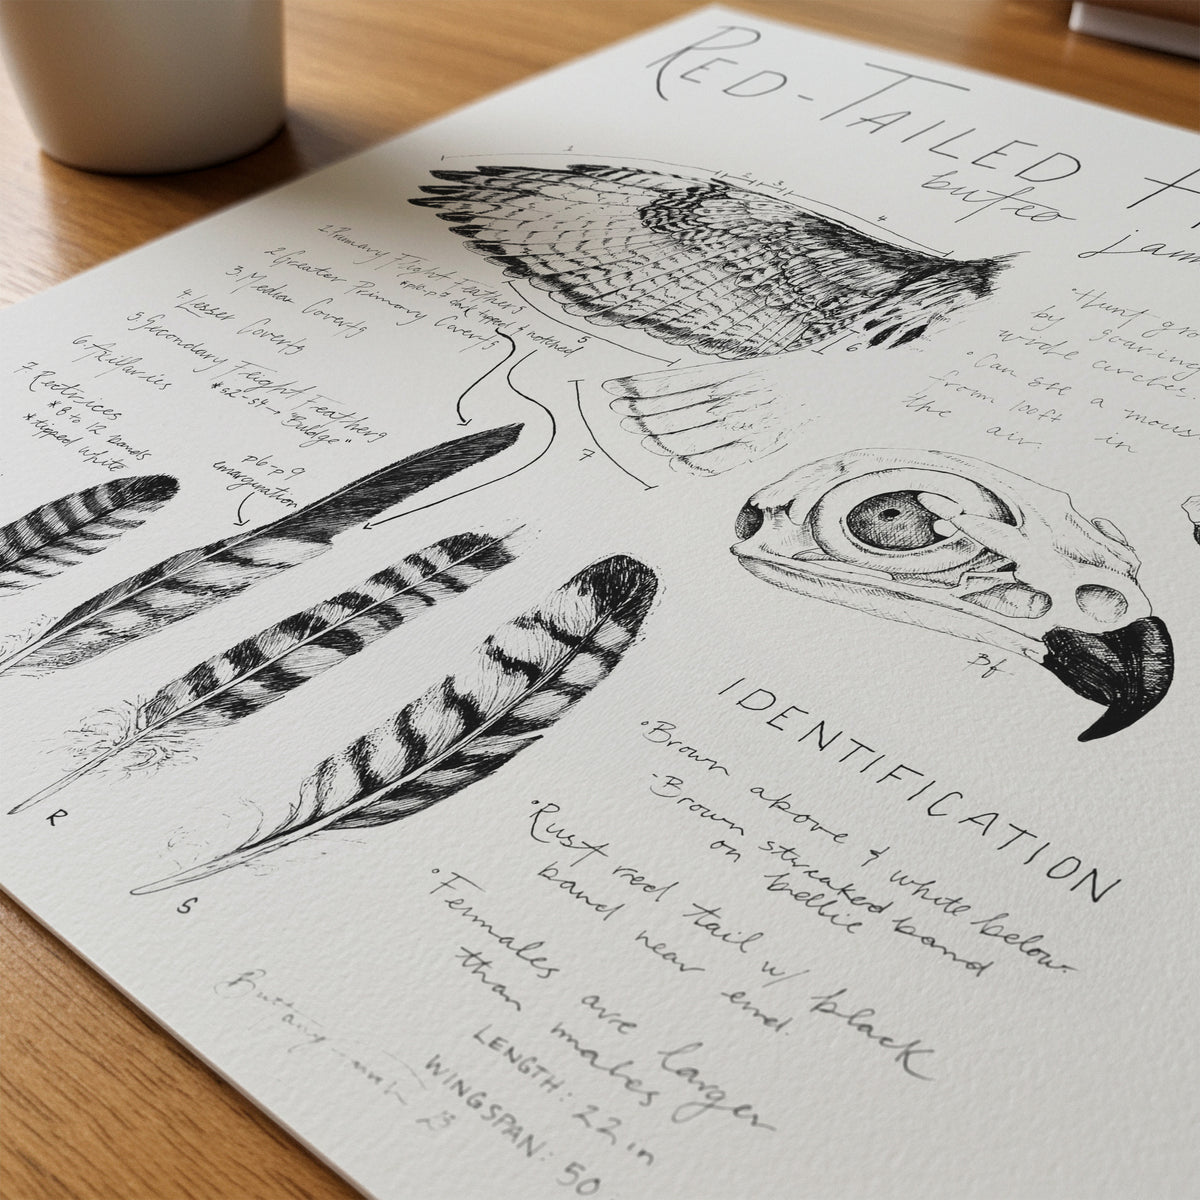 RED-TAILED H
buteo
jam
1 2 3
4
5
6
7
1. Primary Flight Feathers
*p10-p5 dark tipped & notched
2. Greater Primary Coverts
3. Median Coverts
4. Lesser Coverts
5. Secondary Flight Feathers
"Buldge"
6. Axillaries
7. Rectrices
*8 to 12 bands
*tipped white
p6-p9
emargination
•Hunt gro
by soaring
wide circles,
•Can see a mous
from 100ft in
the air.
R
S
Bf
IDENTIFICATION
•Brown above & white below.
-Brown streaked band
on bellie
•Rust red tail w/ black
band near end.
•Females are larger
than males
LENGTH: 22 in
WINGSPAN: 50
Brittany
23